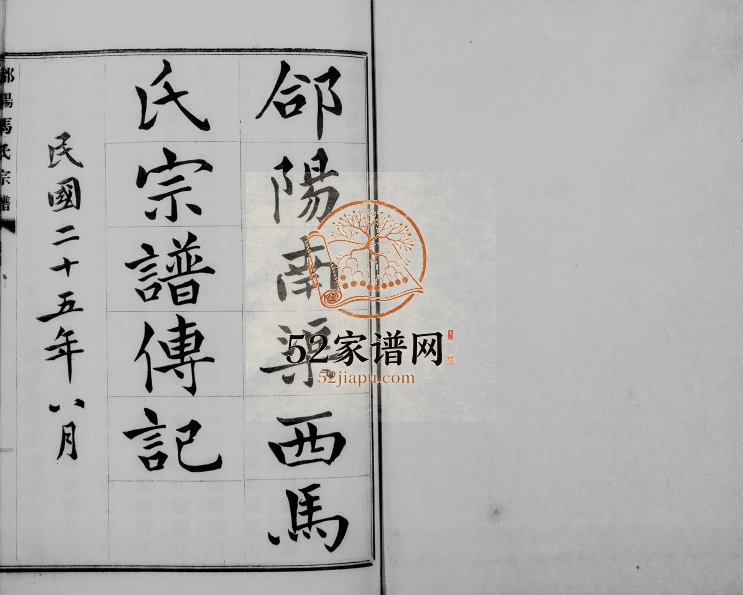 郃陽南渠西馬
氏宗譜傳記
民國二十五年八月
郃陽馬氏宗譜
52家谱网
52jiapu.com